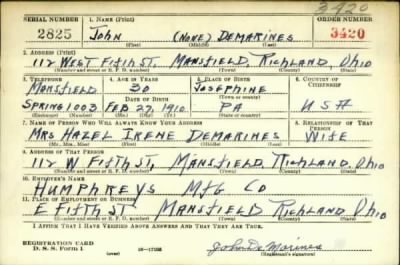 3420
SERIAL NUMBER 1. NAME (Print) ORDER NUMBER
2825 JOHN (NONE) DEMARINES 3420
(First) (Middle) (Last)
2. ADDRESS (Print)
112 WEST FIFTH ST, MANSFIELD, RICHLAND, OHIO
(Number and street or R. F. D. number) (Town) (County) (State)
3. TELEPHONE 4. AGE IN YEARS 5. PLACE OF BIRTH 6. COUNTRY OF CITIZENSHIP
MANSFIELD 30 JOSEPHINE
DATE OF BIRTH (Town or county)
SPRING 1003 FEB 27, 1910 PA USA
(Exchange) (Number) (Mo.) (Day) (Yr.) (State or country)
7. NAME OF PERSON WHO WILL ALWAYS KNOW YOUR ADDRESS 8. RELATIONSHIP OF THAT PERSON
MRS HAZEL IRENE DEMARINES WIFE
(Mr., Mrs., Miss) (First) (Middle) (Last)
9. ADDRESS OF THAT PERSON
112 W FIFTH ST, MANSFIELD, RICHLAND, OHIO
(Number and street or R. F. D. number) (Town) (County) (State)
10. EMPLOYER'S NAME
HUMPHREYS MFG CO
11. PLACE OF EMPLOYMENT OR BUSINESS
E FIFTH ST MANSFIELD RICHLAND OHIO
(Number and street or R. F. D. number) (Town) (County) (State)
I AFFIRM THAT I HAVE VERIFIED ABOVE ANSWERS AND THAT THEY ARE TRUE.
REGISTRATION CARD
D. S. S. Form 1 (over) 16—17105 John De Marines
(Registrant's signature)